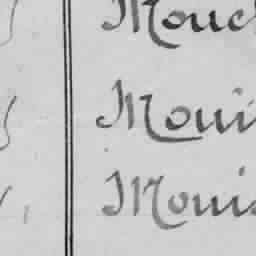 Mouc
Moui
Mouis